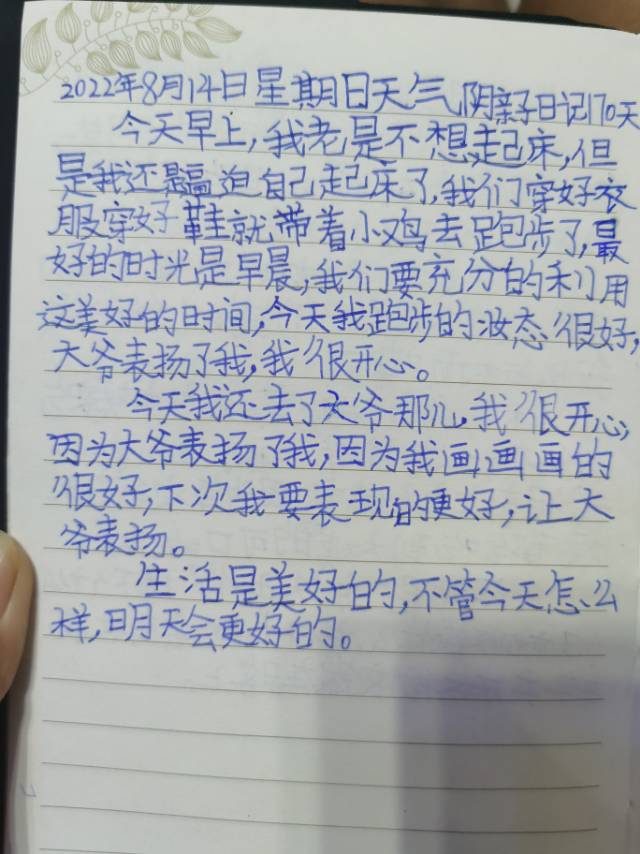 2022年8月14日星期日天气阴亲子日记170天
今天早上,我老是不想起床,但
是我还是逼迫自己起床了,我们穿好衣
服穿好鞋就带着小鸡去跑步了,最
好的时光是早晨,我们要充分的利用
这美好的时间,今天我跑步的状态很好,
大爷表扬了我,我很开心。
今天我还去了大爷那儿,我很开心,
因为大爷表扬了我,因为我画画画的
很好,下次我要表现的更好,让大
爷表扬。
生活是美好的,不管今天怎么
样,明天会更好的。